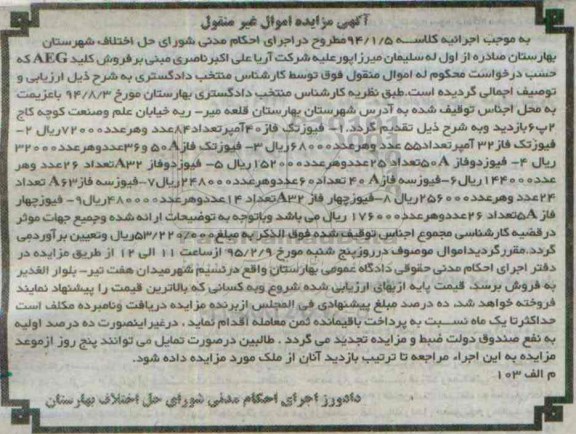 آگهی مزایده اموال غیر منقول
به موجب اجرائیه کلاسه ۹۴/۱/۵مطروح در اجرای احکام مدنی شورای حل اختلاف شهرستان
بهارستان صادره از اول له سلیمان میرزاپور علیه شرکت آریا علی اکبر ناصری مبنی بر فروش کلید AEG که
حسب درخواست محکوم له اموال منقول فوق توسط کارشناس منتخب دادگستری به شرح ذیل ارزیابی و
توصیف اجمالی گردیده است.طبق نظریه کارشناس منتخب دادگستری بهارستان مورخ ۹۴/۸/۳ باعزیمت
به محل اجناس توقیف شده به آدرس شهرستان بهارستان قلعه میر- ریه خیابان علم وصنعت کوچه کاج
۲پ۶بازدید وبه شرح ذیل تقدیم گردد.۱- فیوزتک فاز۴۰آمپرتعداد۸۴عدد وهرعدد۷۲۰۰۰ریال ۲-
فیوزتک فاز۳۲ آمپرتعداد۵۵ عدد وهرعدد۶۸۰۰۰ریال ۳- فیوزتک فازA۵۰ و۳۶عددوهرعدد۳۲۰۰۰
ریال ۴- فیوزدوفاز A۵۰تعداد ۲۵عددوهرعدد۱۵۲۰۰۰ریال ۵- فیوزدوفاز A۳۲تعداد ۲۶عدد وهر
عدد۱۴۴۰۰۰ریال۶-فیوزسه فازA ۴۰ تعداد۶۰عددوهرعدد۲۴۸۰۰۰ریال۷-فیوزسه فازA۶۳ تعداد
۲۴عدد وهرعدد۲۵۶۰۰۰ریال ۸-فیوزچهار فاز A۳۲تعداد ۱۴عددوهرعدد۴۸۰۰۰۰ریال۹- فیوزچهار
فاز A۵تعداد ۲۶عددوهرعدد ۱۷۶۰۰۰ ریال می باشد وباتوجه به توضیحات ارائه شده وجمیع جهات موثر
درقضیه کارشناسی مجموع اجناس توقیف شده فوق الذکر به مبلغ۵۳/۲۲۰/۰۰۰ریال وتعیین برآوردمی
گردد.مقررگردیداموال موصوف درروزپنج شنبه مورخ ۹۵/۲/۹ ازساعت ۱۱ الی ۱۲ از طریق مزایده در
دفتر اجرای احکام مدنی حقوقی دادگاه عمومی بهارستان واقع درنسیم شهرمیدان هفت تیر- بلوار الغدیر
به فروش برسد. قیمت پایه ازبهای ارزیابی شده شروع وبه کسانی که بالاترین قیمت را پیشنهاد نمایند
فروخته خواهد شد. ده درصد مبلغ پیشنهادی فی المجلس ازبرنده مزایده دریافت ونامبرده مکلف است
حداکثرتا یک ماه نسبت به پرداخت باقیمانده ثمن معامله اقدام نماید . درغیراینصورت ده درصد اولیه
به نفع صندوق دولت ضبط و مزایده تجدید می گردد . طالبین درصورت تمایل می توانند پنج روز ازموعد
مزایده به این اجراء مراجعه تا ترتیب بازدید آنان از ملک مورد مزایده داده شود.
م الف ۱۰۳
دادورز اجرای احکام مدنی شورای حل اختلاف بهارستان